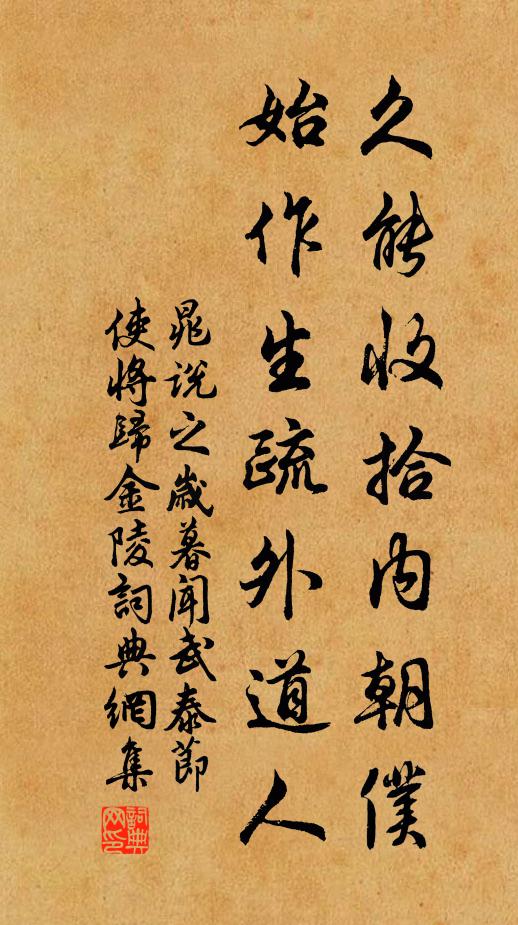 久能收拾内朝僕
始作生疏外道人
晁說之歲暮聞武泰節
使將歸金陵詞典網集
詞典网印